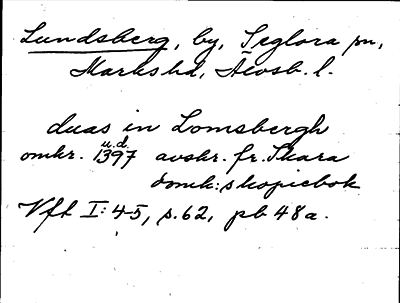 Lundsberg, by, Seglora sn,
Marks hd, Älvsb. l.
duas in Lomsbergh
u.d.
omkr. 1397 avskr. fr. Skara
domk:s kopiebok
Vft I: 4-5, s. 62, pb 48a.